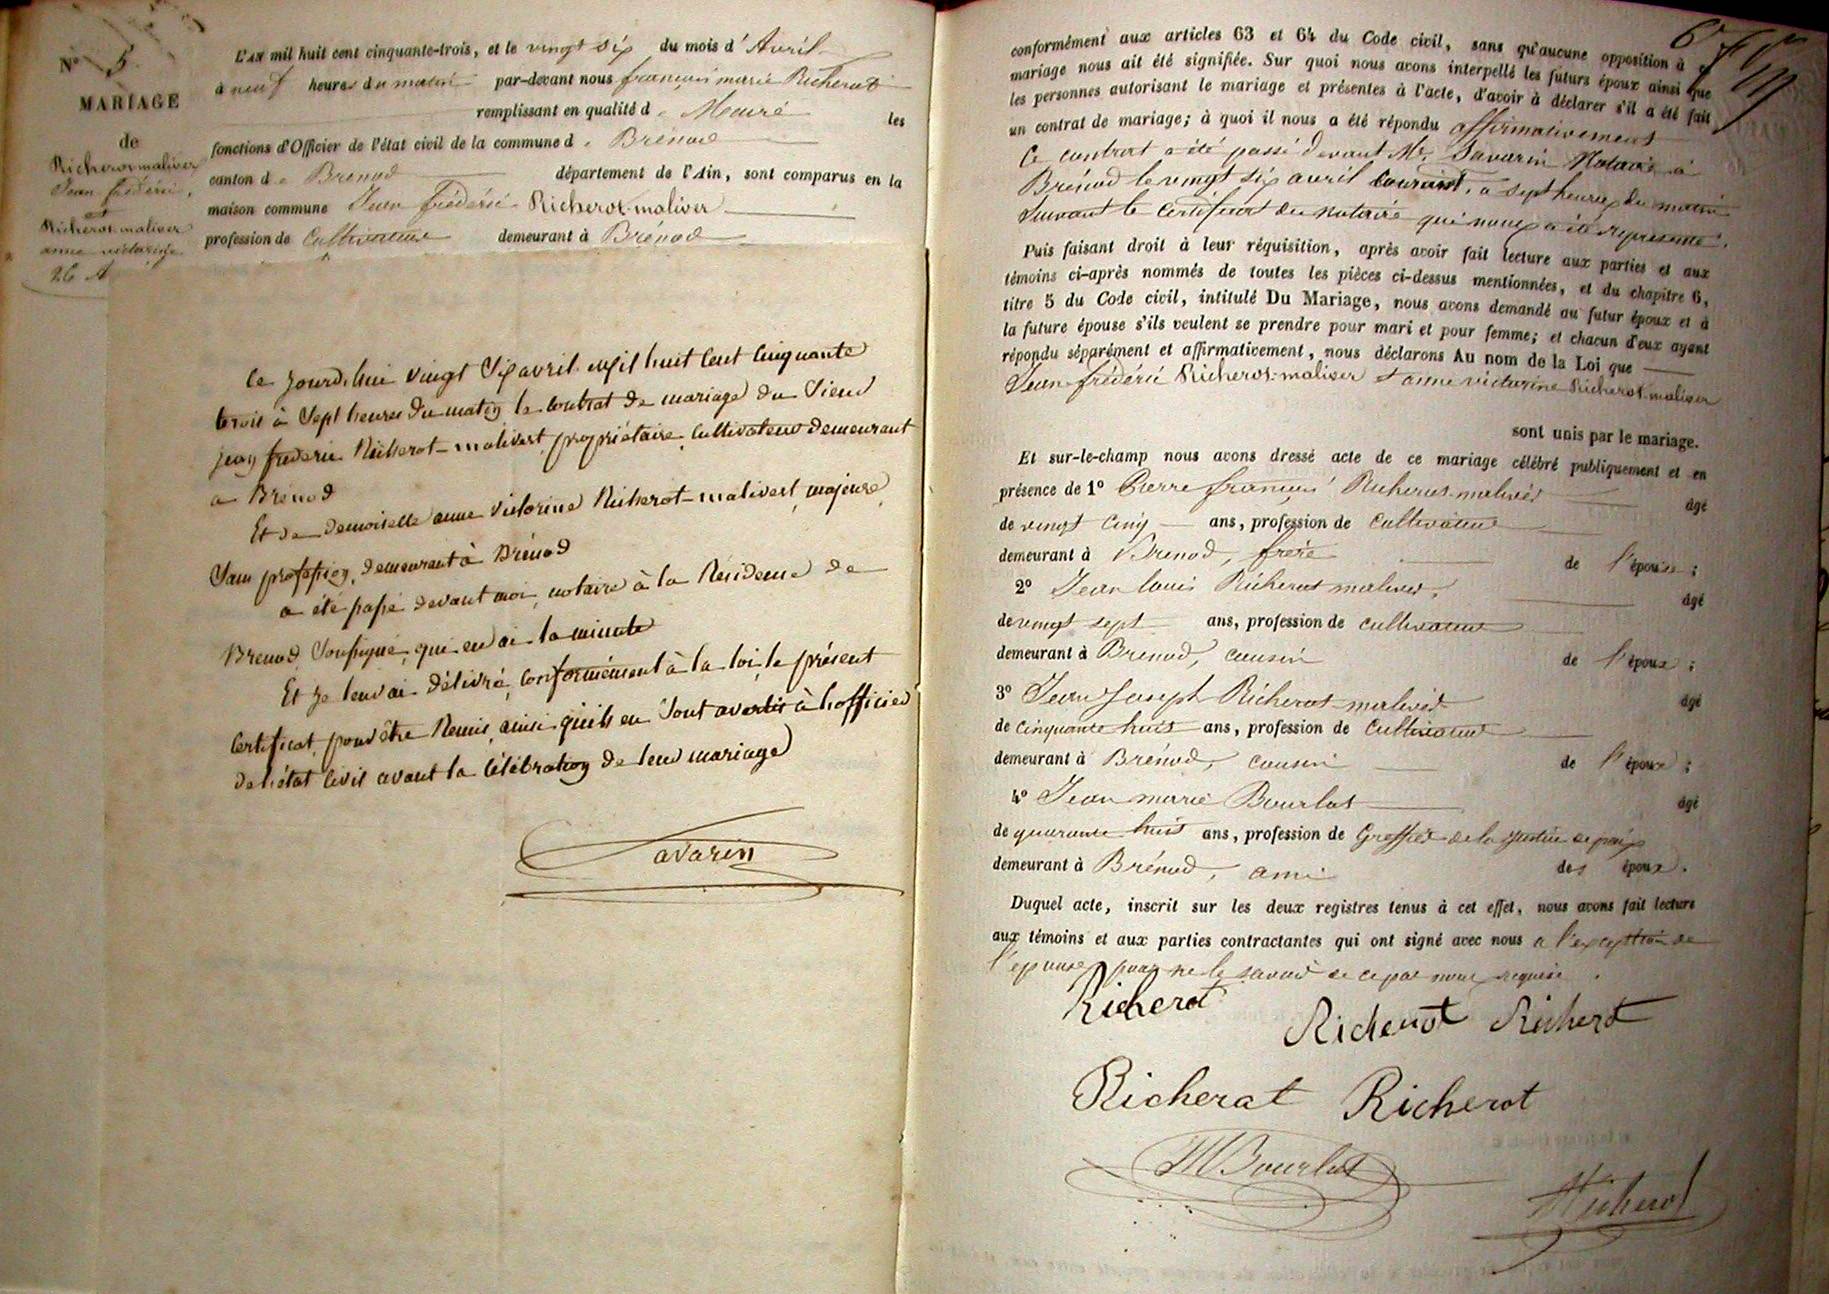 N° 5
MARIAGE
de
Richerot-maliver
Jean frédéric
et
Richerot-maliver
anne victorine
26 A
L'AN mil huit cent cinquante-trois, et le vingt six du mois d'Avril
à neuf heures du matin par-devant nous françois marie Richerot
remplissant en qualité de Maire les
fonctions d'Officier de l'état civil de la commune de Brénod
canton de Brenod département de l'Ain, sont comparus en la
maison commune Jean frédéric Richerot-maliver
profession de Cultivateur demeurant à Brénod
Ce jourd'hui vingt Six avril mil huit Cent Cinquante
trois à Sept heures du matin le Contrat de mariage du Sieur
jean frederic Richerot-malivert, propriétaire Cultivateur demeurant
a Brénod
Et de demoiselle anne victorine Richerot-malivert, majeure
Sans profession, demeurant à Brénod
a été passé devant moi, notaire à la Résidence de
Brenod Soussigné, qui en ai la minute
Et je leur ai délivré, conformément à la loi, le présent
Certificat, pour être Remis, ainsi qu'ils en Sont avertis à l'officier
de l'état Civil avant la Célébration de leur mariage
Savarin
conformément aux articles 63 et 64 du Code civil, sans qu'aucune opposition à ce
mariage nous ait été signifiée. Sur quoi nous avons interpellé les futurs époux ainsi que
les personnes autorisant le mariage et présentes à l'acte, d'avoir à déclarer s'il a été fait
un contrat de mariage; à quoi il nous a été répondu affirmativement
Ce contrat a été passé devant Me. Savarin Notaire à
Brénod le vingt six avril Courant, a sept heures du matin
Suivant le Certificat du notaire qui nous a été représenté.
Puis faisant droit à leur réquisition, après avoir fait lecture aux parties et aux
témoins ci-après nommés de toutes les pièces ci-dessus mentionnées, et du chapitre 6,
titre 5 du Code civil, intitulé Du Mariage, nous avons demandé au futur époux et à
la future épouse s'ils veulent se prendre pour mari et pour femme; et chacun d'eux ayant
répondu séparément et affirmativement, nous déclarons Au nom de la Loi que
Jean frédéric Richerot-maliver et anne victorine Richerot-maliver
sont unis par le mariage.
Et sur-le-champ nous avons dressé acte de ce mariage célébré publiquement et en
présence de 1° Pierre françois Richerot-maliver âgé
de vingt cinq ans, profession de Cultivateur
demeurant à Brénod, frère de l'épouse;
2° Jean louis Richerot maliver, âgé
de vingt sept ans, profession de cultivateur
demeurant à Brénod, cousin de l'époux;
3° Jean Joseph Richerot-maliver âgé
de cinquante huit ans, profession de Cultivateur
demeurant à Brénod, cousin de l'époux;
4° Jean marie Bourlot âgé
de quarante huit ans, profession de Greffier de la justice de paix
demeurant à Brénod, ami des époux.
Duquel acte, inscrit sur les deux registres tenus à cet effet, nous avons fait lecture
aux témoins et aux parties contractantes qui ont signé avec nous a l'exception de
l'épouse, pour ne le savoir de ce par nous requise.
Richerot
Richerot Richerot
Richerat Richerot
JM Bourlot
Richerot